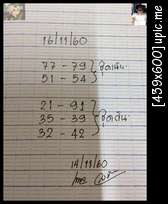 16/11/60
77 - 79
51 - 54
ชุดเน้น
21 - 91
35 - 39
32 - 42
ชุดเน้น
14/11/60
[439x600] upic.me